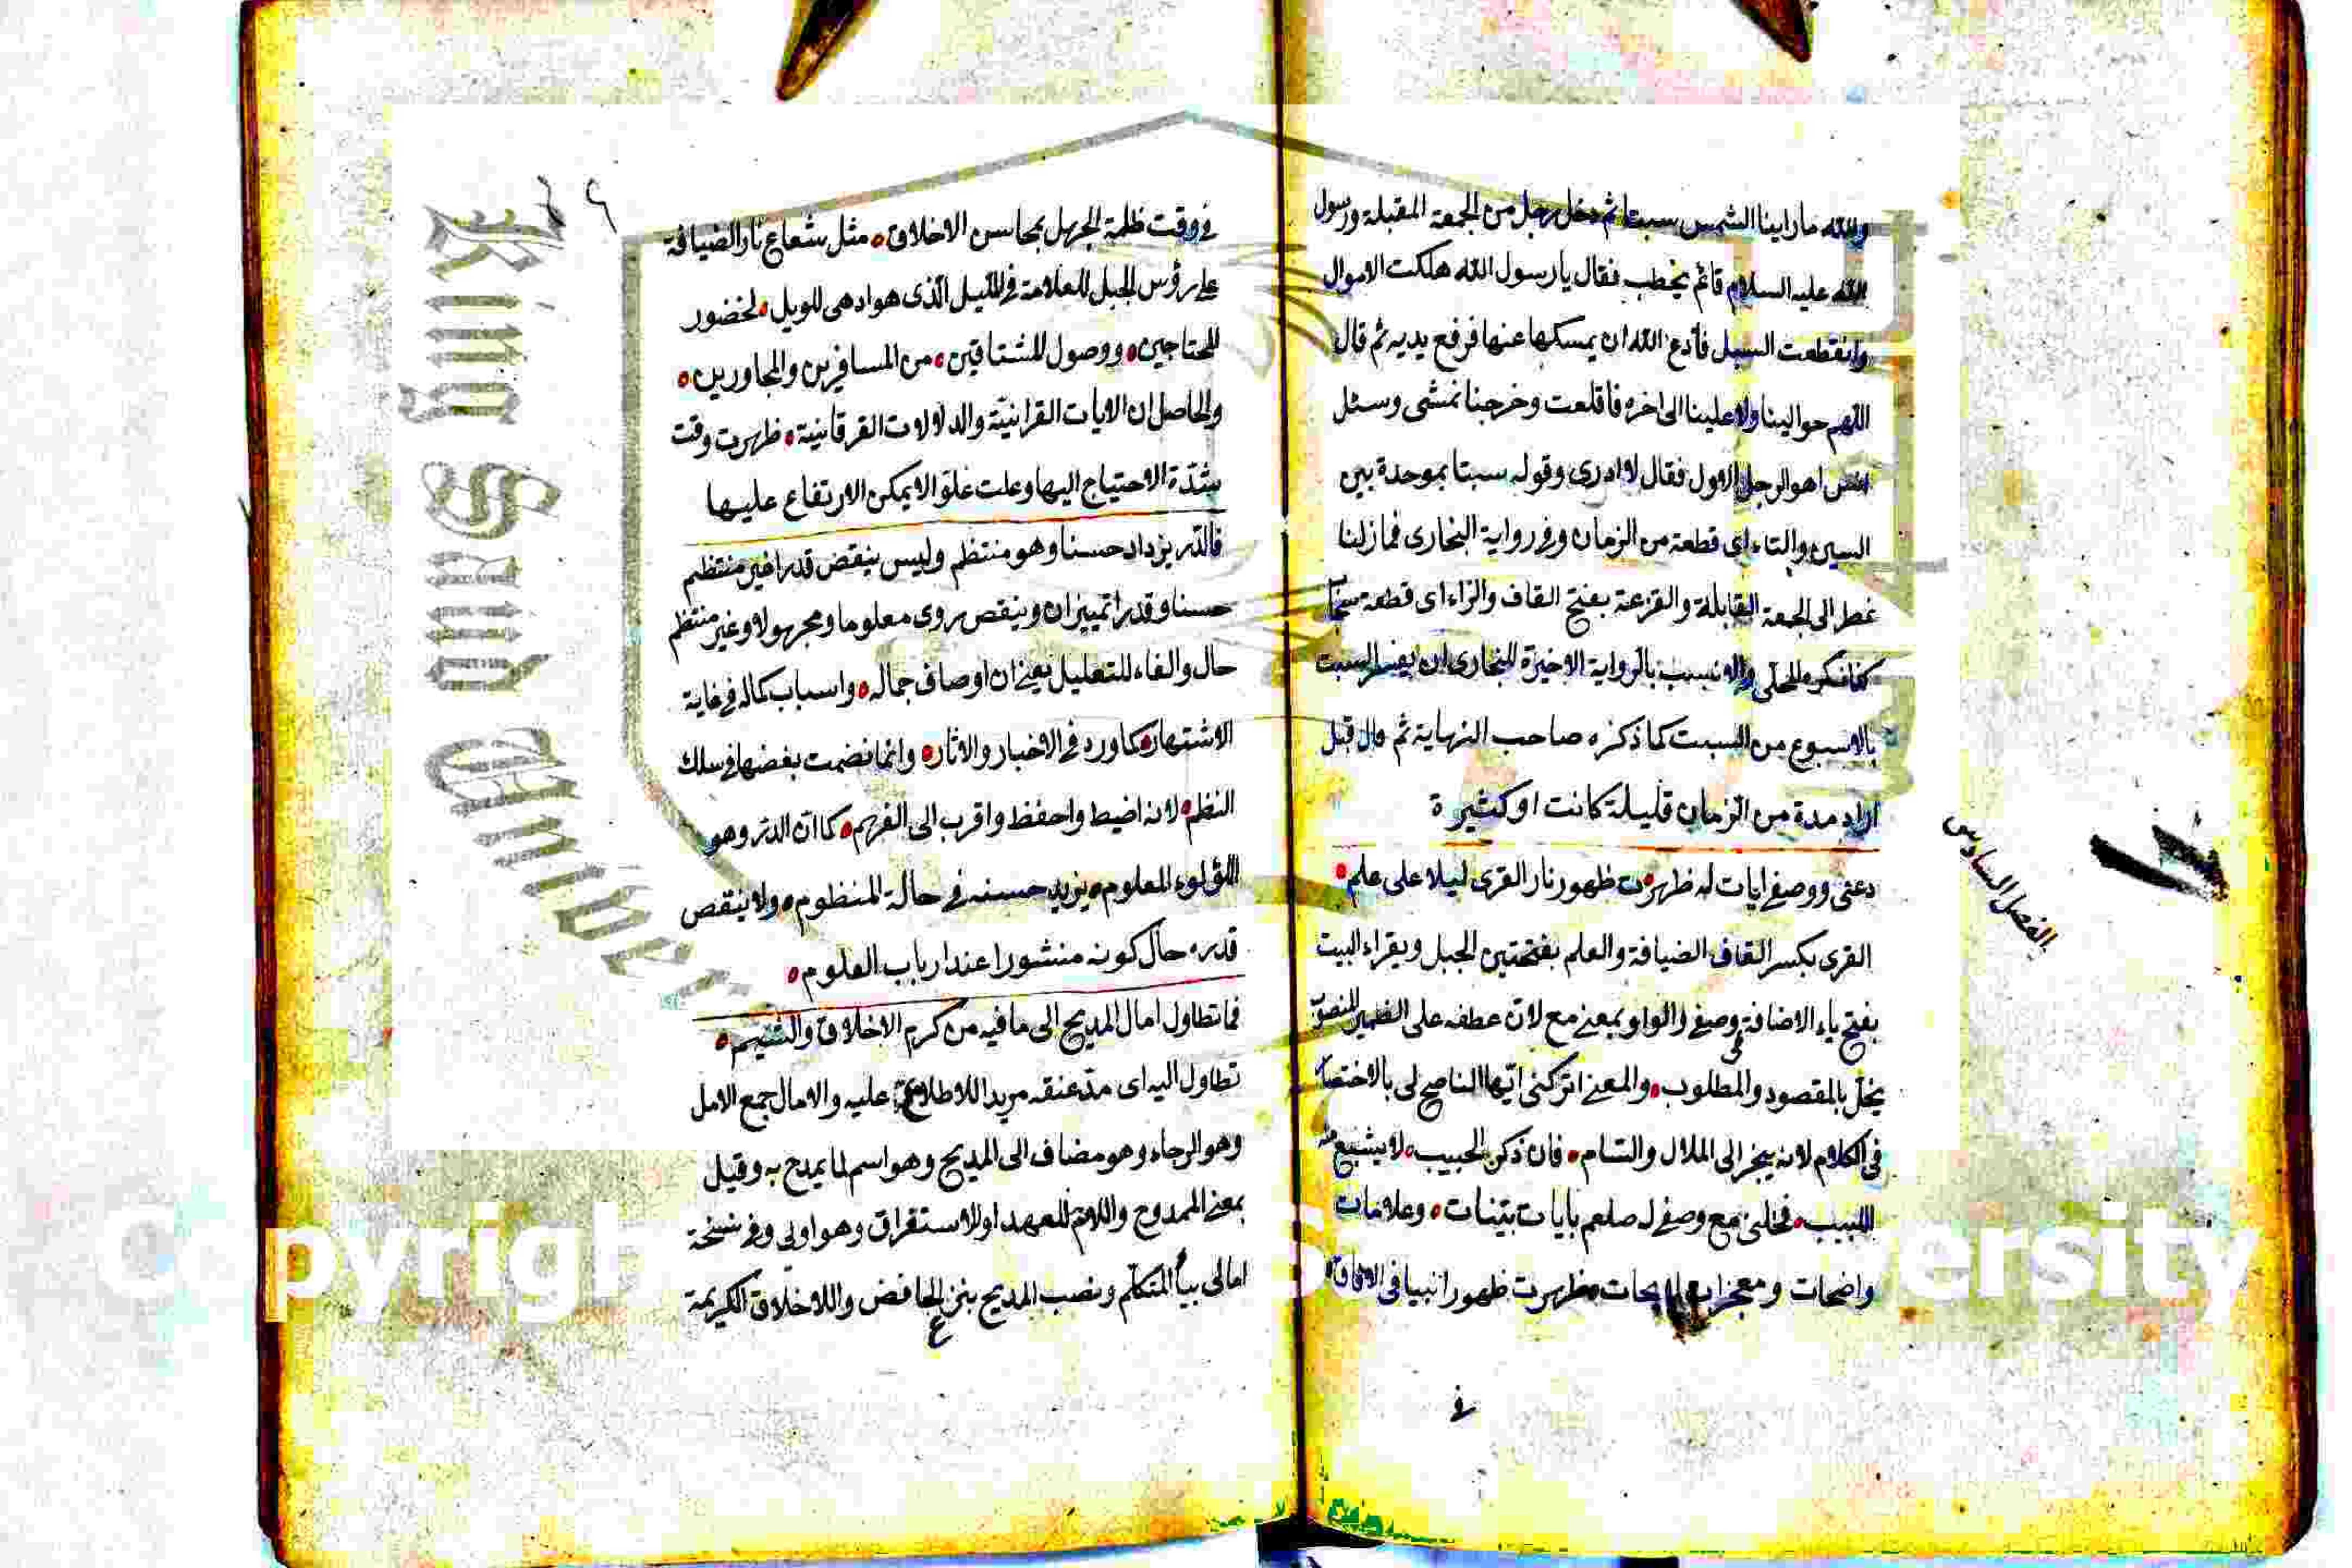 والله ما راينا الشمس سبتا ثم دخل رجل من الجمعة المقبلة ورسول
الله عليه السلام قائم يخطب فقال يا رسول الله هلكت الاموال
وانقطعت السبل فادع الله ان يمسكها عنها فرفع يديه ثم قال
اللهم حوالينا ولا علينا الى اخره فاقلعت وخرجنا نمشى وسئل
انس اهو الرجل الاول فقال لا ادرى وقوله سبتا بموحدة بين
السين والتاء اى قطعة من الزمان وفى رواية البخارى فما زلنا
نمطر الى الجمعة القابلة والقزعة بفتح القاف والزاء اى قطعة سحاب
كذا ذكره المحلى والانسب بالرواية الاخيرة للبخارى ان يفسر السبت
بالاسبوع من السبت كما ذكره صاحب النهاية ثم قال قيل
اراد مدة من الزمان قليلة كانت او كثيرة
دعنى ووصفى ايات له ظهرت ظهور نار القرى ليلا على علم
الفصل السادس
القرى بكسر القاف الضيافة والعلم بفتحتين الجبل ويقراء البيت
بفتح ياء الاضافة وصفى والواو بمعنى مع لان عطفه على الضمير المنصوب
يخل بالمقصود والمطلوب والمعنى اتركنى ايها الناصح لى بالاختصار
فى الكلام لانه ينجر الى الملال والسام فان ذكر الحبيب لا يشبع منه
اللبيب فخلنى مع وصفى له صلعم بايات بينات وعلامات
واضحات ومعجزات ظهرت ظهورا نبيا فى الافاق
فى
فى وقت ظلمة الجهل بمحاسن الاخلاق مثل شعاع نار الضيافة
على رؤس الجبل للعلامة فى الليل الذى هو ادهى للويل لحضور
المحتاجين ووصول المشتاقين من المسافرين والمجاورين
والحاصل ان الايات القرانية والدلالات الفرقانية ظهرت وقت
شدة الاحتياج اليها وعلت علوا لا يمكن الارتفاع عليها
فالدر يزداد حسنا وهو منتظم وليس ينقص قدرا غير منتظم
حسنا وقدرا تمييزان وينقص روى معلوما ومجهولا وغير منتظم
حال والفاء للتعليل يعنى ان اوصاف جماله واسباب كماله فى غاية
الاشتهار كما ورد فى الاخبار والاثار وانما نضمت بعضها فى سلك
النظم لانه اضبط واحفظ واقرب الى الفهم كما ان الدر وهو
اللؤلوء المعلوم يزيد حسنه فى حالة المنظوم ولا ينقص
قدره حال كونه منشورا عند ارباب العلوم
فما تطاول امال المديح الى ما فيه من كرم الاخلاق والشيم
تطاول اليه اى مد عنقه مريدا للاطلاع عليه والامال جمع الامل
وهو الرجاء وهو مضاف الى المديح وهو اسم لما يمدح به وقيل
بمعنى الممدوح واللام للعهد او للاستغراق وهو اولى وفى نسخة
امالى بياء المتكلم ونصب المديح بنزع الخافض والاخلاق الكريمة
King Saud University
Copyright King Saud University